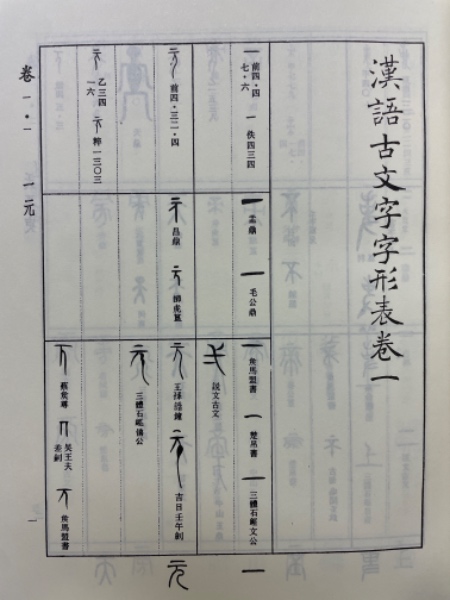 漢語古文字字形表卷一
一 前四・四七・六
一 佚四三四
一 盂鼎
一 毛公鼎
一 侯馬盟書
一 楚帛書
一 三體石經文公
弌 說文古文
一
元 前四・三二・四
元 舀鼎
元 師虎簋
元 王孫鐘
元 吉日壬午劍
元
元 三體石經僖公
乙三四一六
元 粹一三〇三
元 蔡侯尊
元 吳王夫差劍
元 侯馬盟書
卷一・一 一元
一